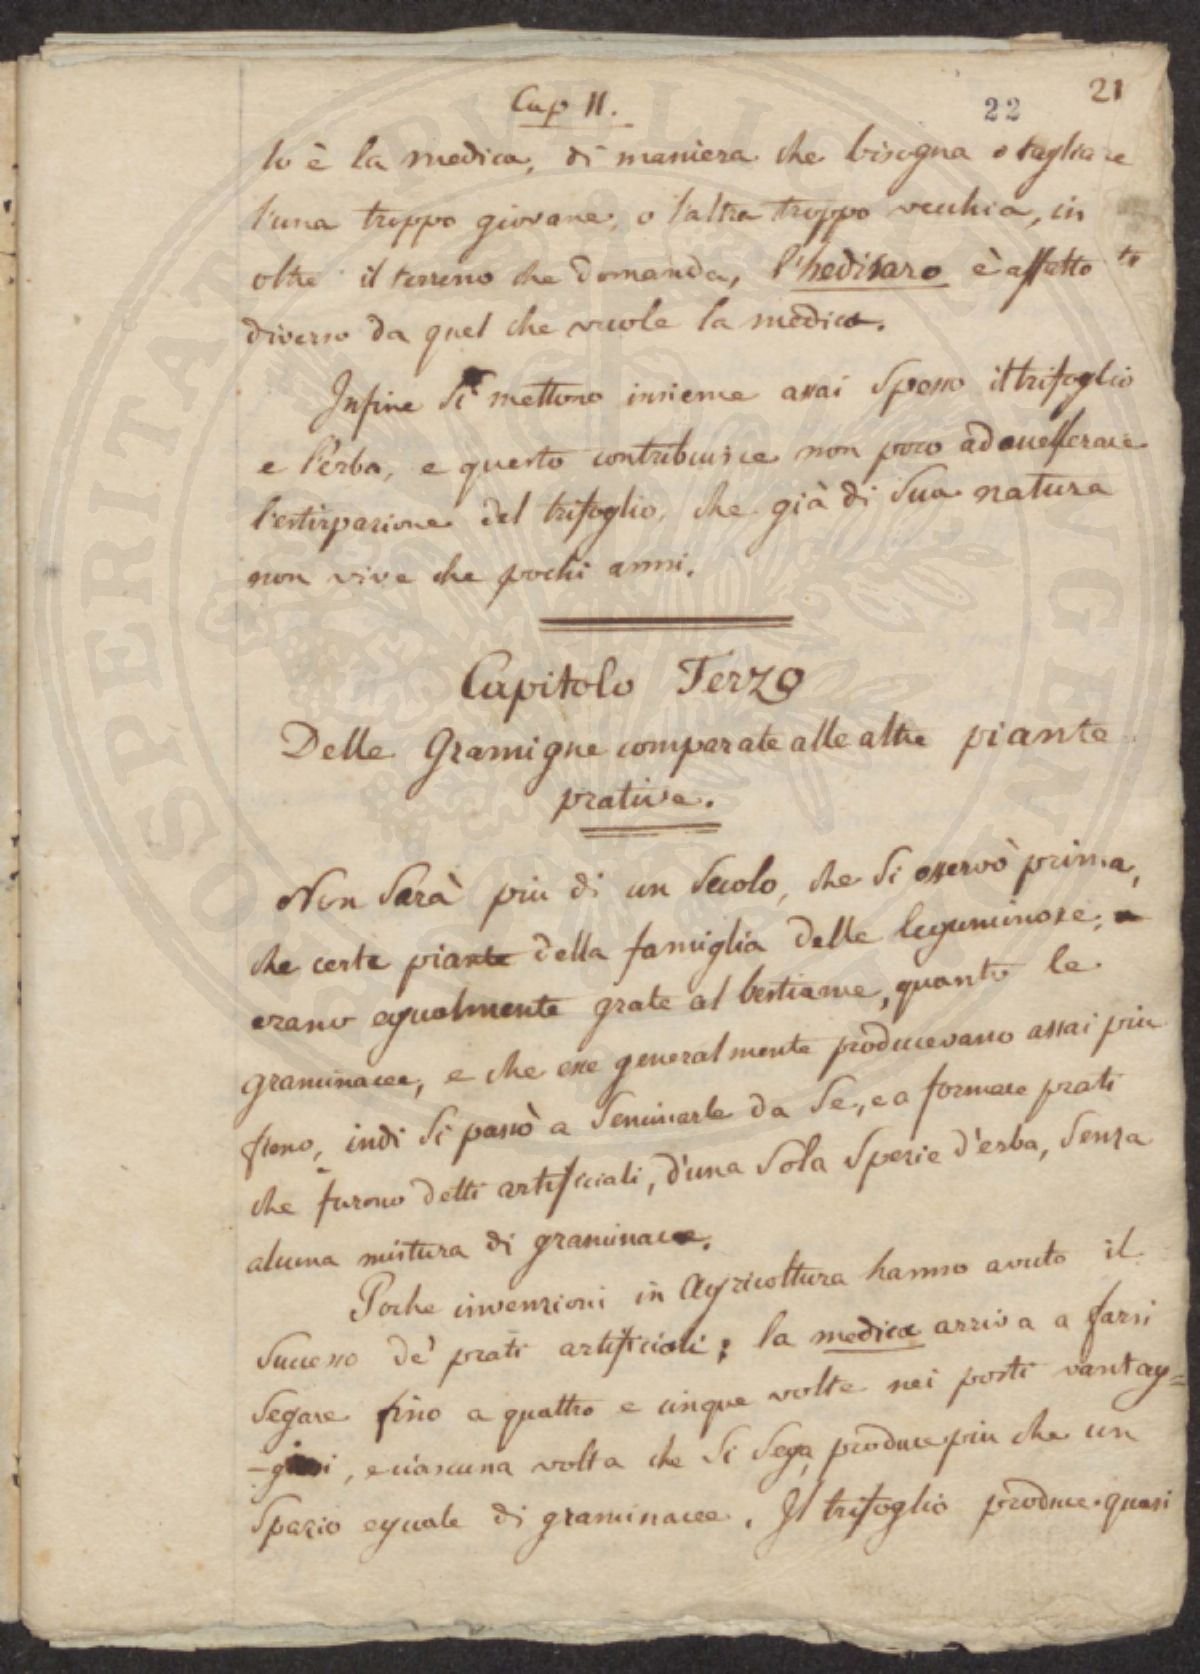 Cap II.
22
21
lo è la medica, di maniera che bisogna o tagliare
l'una troppo giovane, o l'altra troppo vecchia, in
oltre il terreno che domanda, l'hedisaro è affatto
diverso da quel che vuole la medica.
Infine si mettono insieme assai spesso il trifoglio
e l'erba, e questo contribuisce non poco ad
l'estirpazione del trifoglio, che già di sua natura
non vive che pochi anni.
Capitolo Terzo
Delle Gramigne comparate alle altre piante
prative.
Non sarà più di un secolo, che si osservò prima,
che certe piante della famiglia delle leguminose,
erano egualmente grate al bestiame, quanto le
graminacee, e che esse generalmente producevano assai più
fieno, indi si passò a seminarle da se, e a formare prati
che furono detti artificiali, d'una sola spezie d'erba, senza
alcuna mistura di graminacee.
Poche invenzioni in Agricoltura hanno avuto il
successo de' prati artificiali; la medica arriva a farsi
segare fino a quattro e cinque volte nei posti vantag=
-giosi, e ciascuna volta che si sega, produce più che un
spazio eguale di graminacee. Il trifoglio produce quasi
OSPERITATI PVBLICAE AVGENDAE